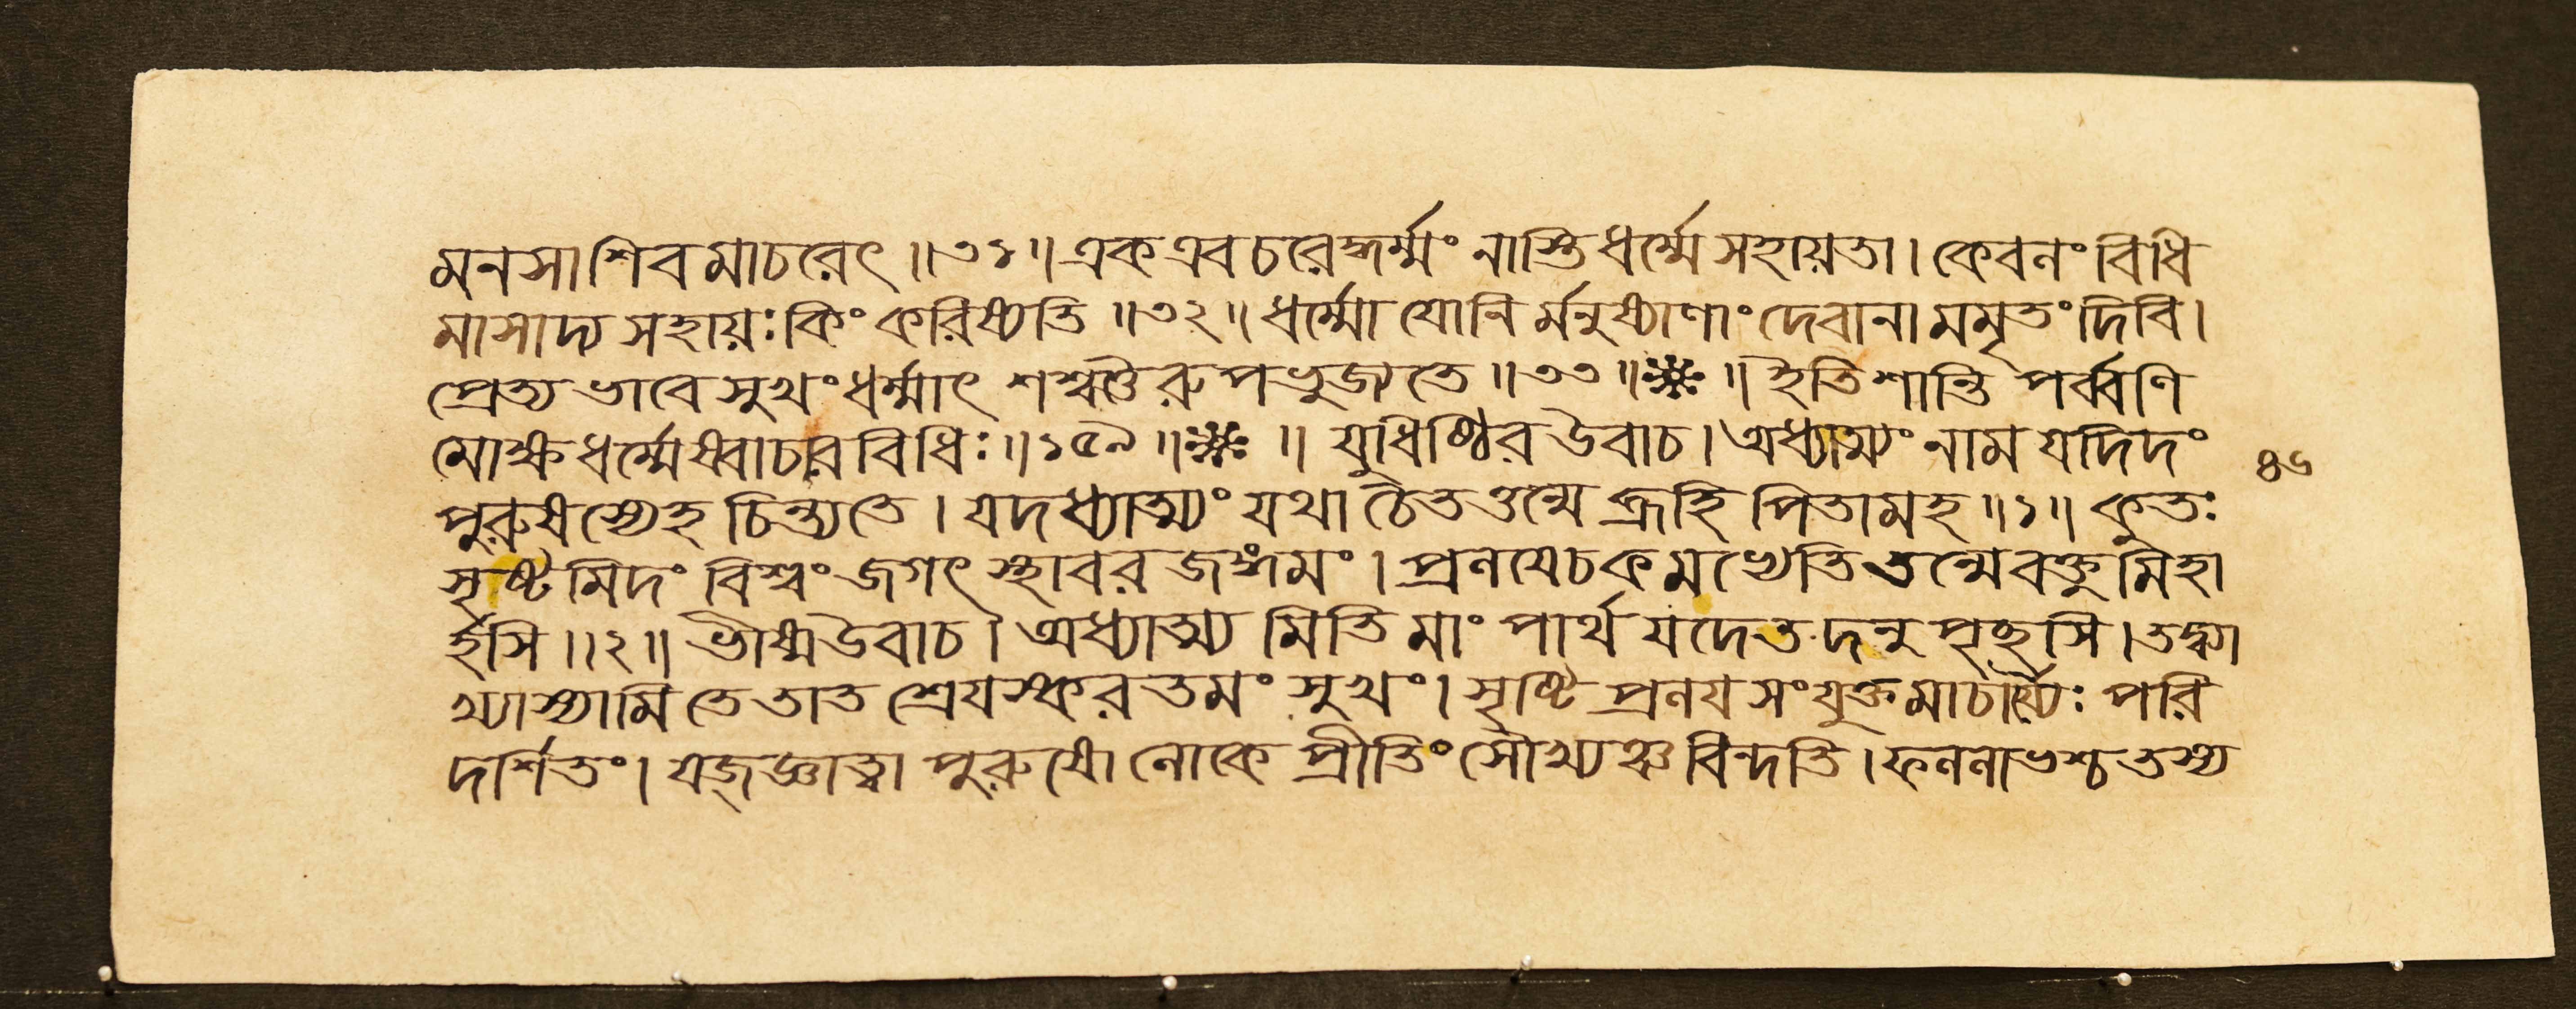 মনসা শিবমাচরেৎ ॥ ৩১ ॥ এক এব চরেদ্ধর্ম্মং নাস্তি ধর্ম্মে সহায়তা । কেবলং বিধি
মাসাদ্য সহায়ঃ কিং করিষ্যতি ॥ ৩২ ॥ ধর্ম্মো যোনি র্মনুষ্যাণাং দেবানামমৃতং দিবি ।
প্রেত্যভাবে সুখং ধর্ম্মাৎ শশ্বত্তৈরুপভুজ্যতে ॥ ৩৩ ॥ ❋ ॥ ইতি শান্তি পর্ব্বণি
মোক্ষধর্ম্মেষ্বাচারবিধিঃ ॥ ১৫৯ ॥ ❋ ॥ যুধিষ্ঠির উবাচ । অধ্যাত্ম্যং নাম যদিদং
পুরুষস্যেহ চিন্ত্যতে । যদধ্যাত্ম্যং যথা চৈতত্তন্মে ব্রূহি পিতামহ ॥ ১ ॥ কুতঃ
সৃষ্টমিদং বিশ্বং জগৎ স্থাবর জঙ্গমং । প্রলযে চ কমভ্যেতি তন্মে বক্তুমিহা
র্হসি ॥ ২ ॥ ভীষ্ম উবাচ । অধ্যাত্ম্যমিতি মাং পার্থ যদেতদনুপৃচ্ছসি । তদ্ব্যা
খ্যাস্যামি তে তাত শ্রেযস্করতমং সুখং । সৃষ্টি প্রলয সংযুক্তমাচার্য্যৈঃ পরি
দর্শিতং । যজ্জ্ঞাত্বা পুরুষো লোকে প্রীতিং সৌখ্যঞ্চ বিন্দতি । ফললাভশ্চ তস্য
৪৬